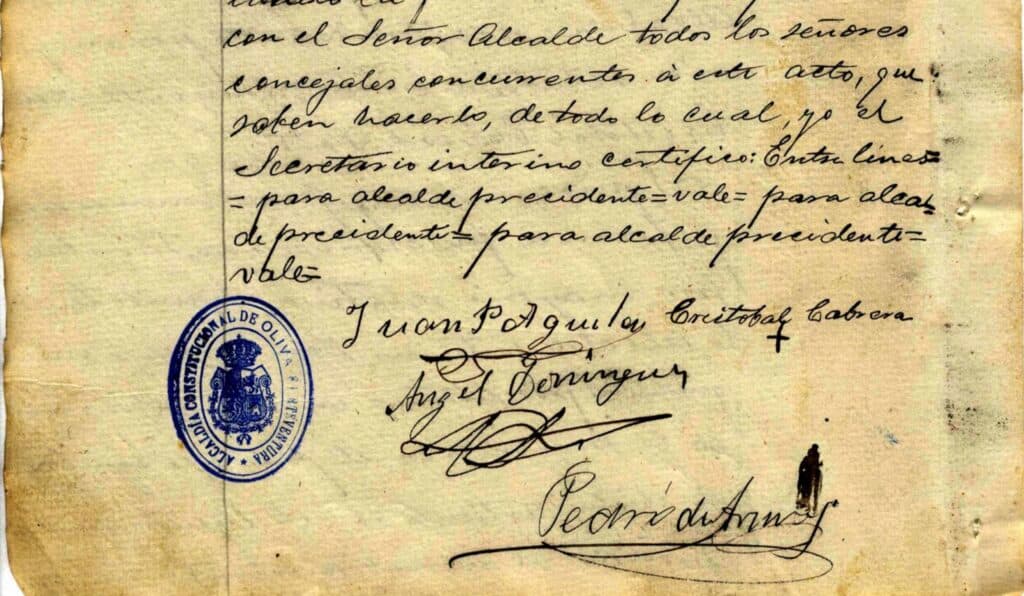 con el Señor Alcalde todos los señores
concejales concurrentes à este acto, que
saben hacerlo, de todo lo cual, yo el
Secretario interino certifico: Entre lineas=
= para alcalde precidente=vale= para alcal=
de precidente= para alcalde precidente=
vale=
Juan P Aguilar Cristobal Cabrera
Angel Dominguez
Pedro de Armas
ALCALDÍA CONSTITUCIONAL DE OLIVA FUERTEVENTURA